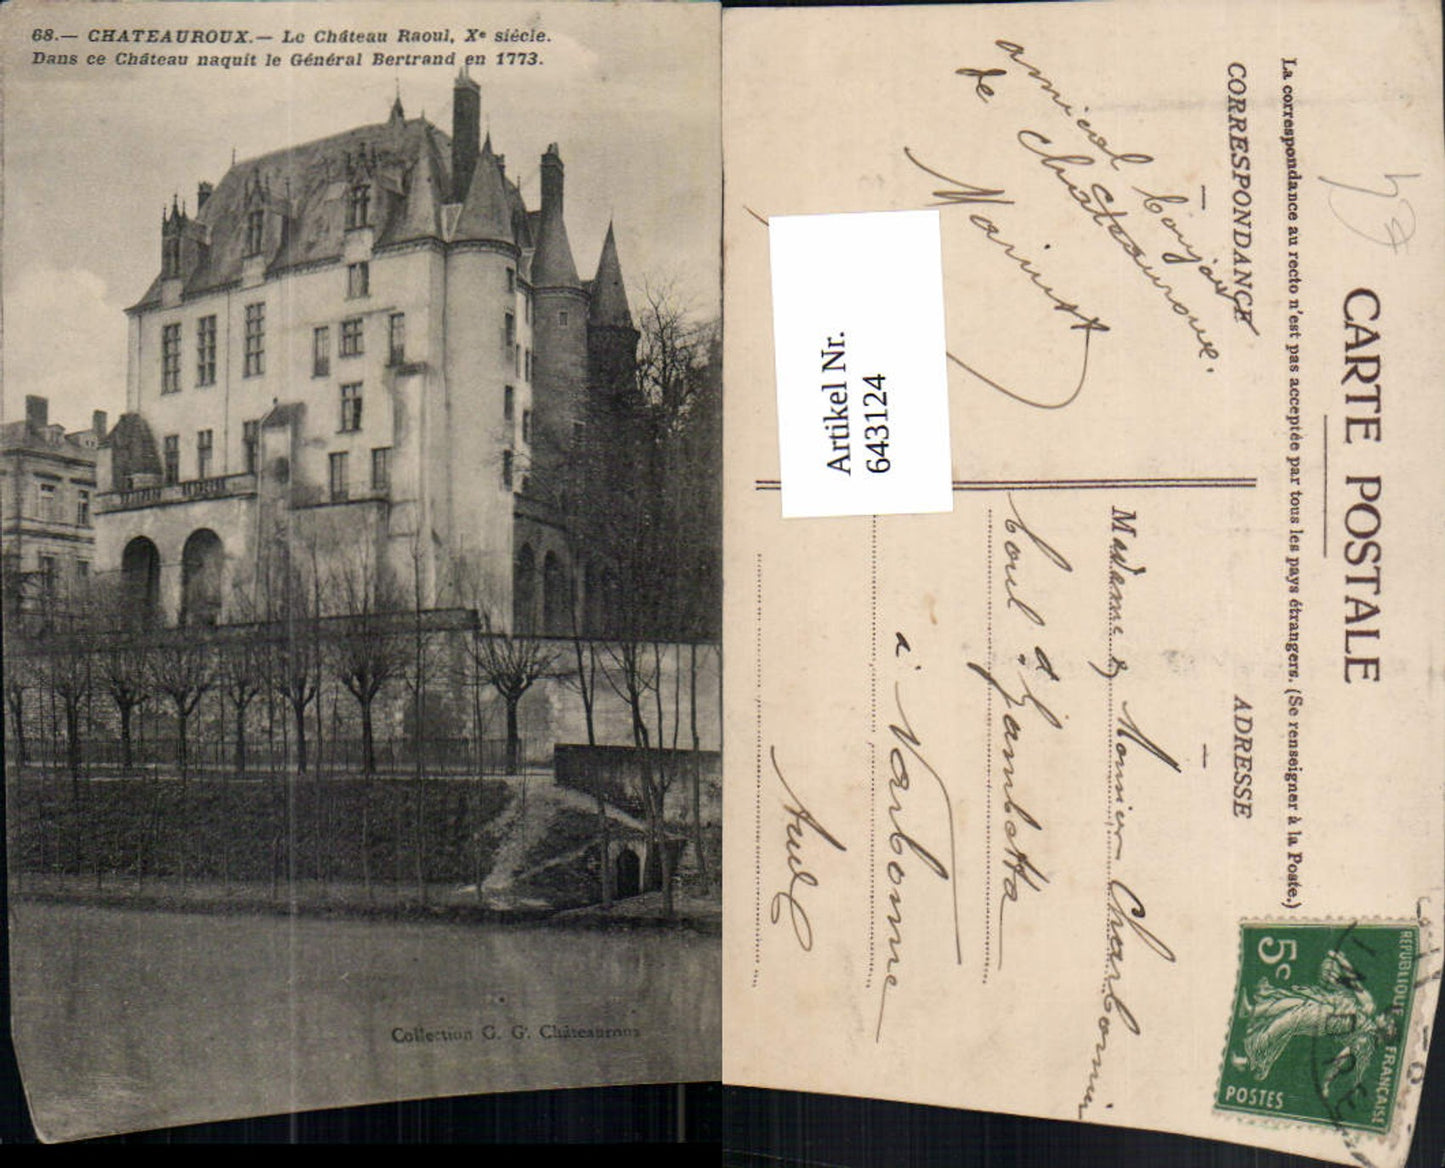 68.— CHATEAUROUX.— Le Château Raoul, Xe siècle.
Dans ce Château naquit le Général Bertrand en 1773.
Collection G. G. Châteauroux
CARTE POSTALE
La correspondance au recto n'est pas acceptée par tous les pays étrangers. (Se renseigner à la Poste.)
CORRESPONDANCE
ADRESSE
amical bonjour
de Châteauroux
Madame & Monsieur Charbonnier
boul d Gambetta
à Narbonne
Aude
Artikel Nr.
643124
REPUBLIQUE FRANÇAISE
5c
POSTES
INDRE